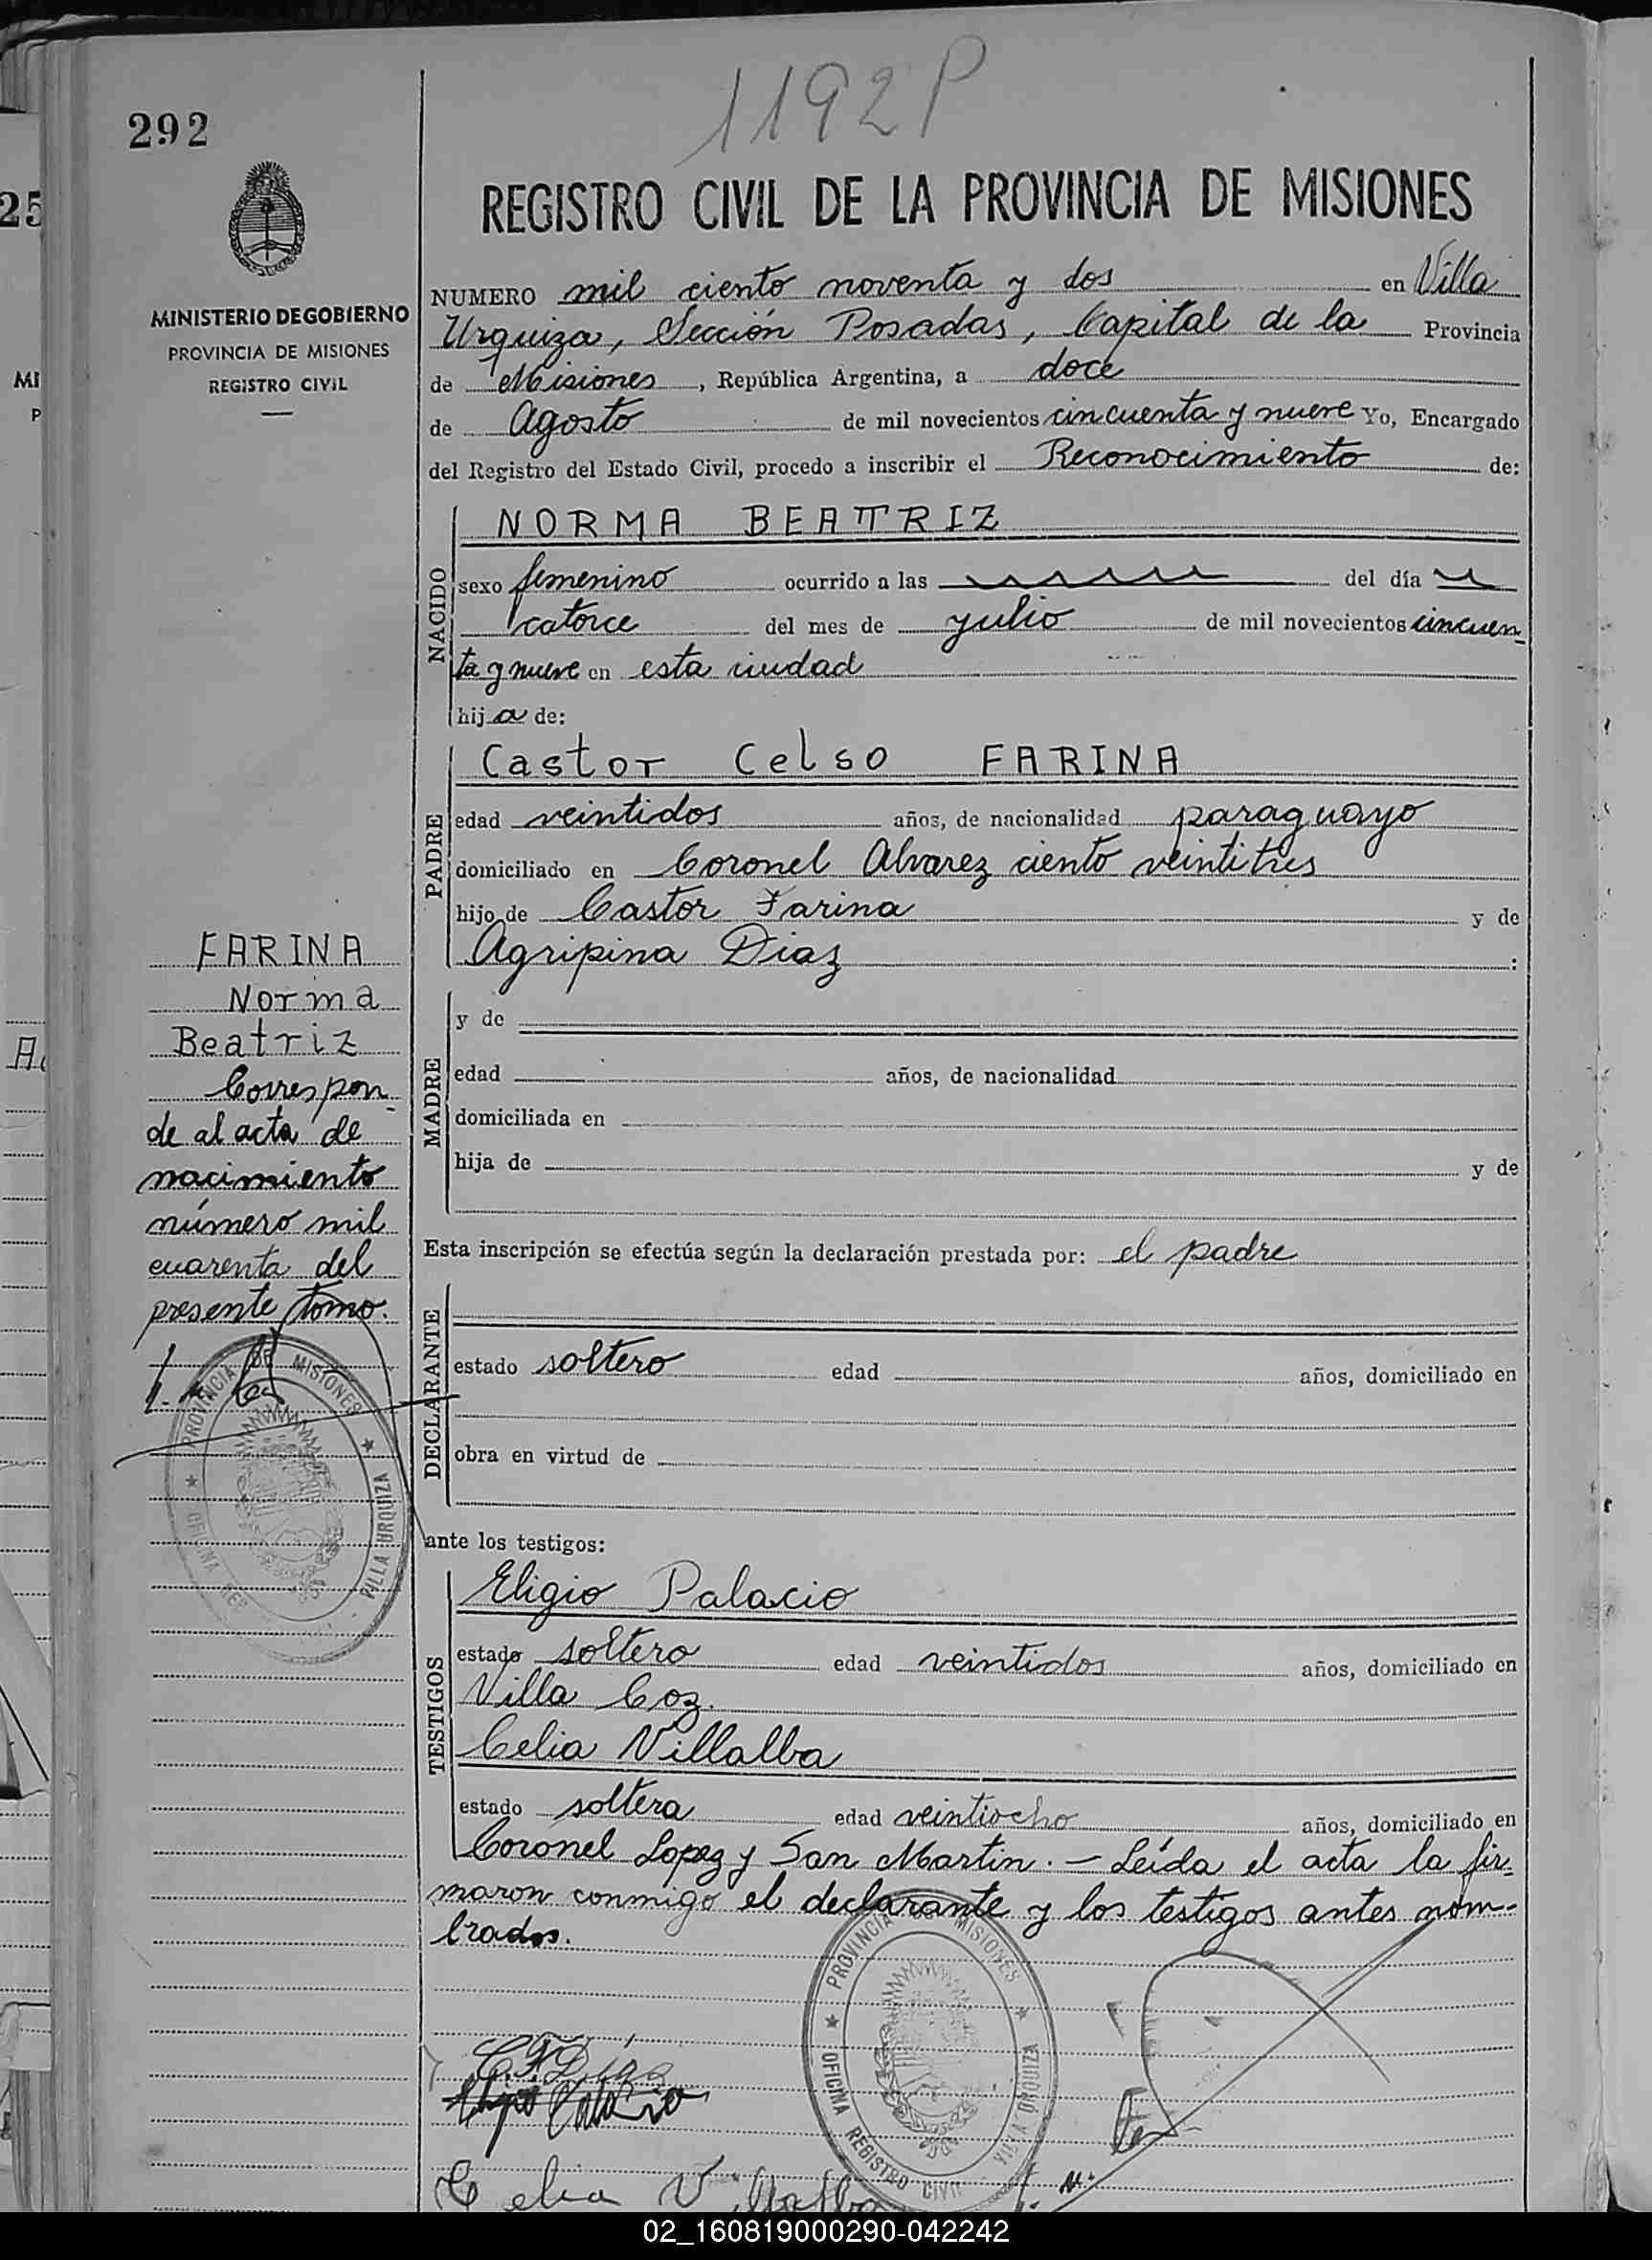 1192P
292
REGISTRO CIVIL DE LA PROVINCIA DE MISIONES
MINISTERIO DE GOBIERNO
PROVINCIA DE MISIONES
REGISTRO CIVIL
NUMERO mil ciento noventa y dos en Villa
Urquiza, Sección Posadas, Capital de la Provincia
de Misiones, República Argentina, a doce
de Agosto de mil novecientos cincuenta y nueve Yo, Encargado
del Registro del Estado Civil, procedo a inscribir el Reconocimiento de:
NACIDO
NORMA BEATRIZ
sexo femenino ocurrido a las del día
catorce del mes de julio de mil novecientos cincuen-
ta y nueve en esta ciudad
hija de:
PADRE
Castor Celso FARINA
edad veintidos años, de nacionalidad paraguayo
domiciliado en Coronel Alvarez ciento veintitres
hijo de Castor Farina y de
Agripina Diaz :
MADRE
y de
edad años, de nacionalidad
domiciliada en
hija de y de
Esta inscripción se efectúa según la declaración prestada por: el padre
DECLARANTE
estado soltero edad años, domiciliado en
obra en virtud de
ante los testigos:
TESTIGOS
Eligio Palacio
estado soltero edad veintidos años, domiciliado en
Villa Coz.
Celia Villalba
estado soltera edad veintiocho años, domiciliado en
Coronel Lopez y San Martin. — Leída el acta la fir-
maron conmigo el declarante y los testigos antes nom-
brados.
FARINA
Norma
Beatriz
Correspon-
de al acta de
nacimiento
número mil
cuarenta del
presente tomo.
PROVINCIA DE MISIONES
VILLA URQUIZA
OFICINA
PROVINCIA DE MISIONES
OFICINA REGISTRO CIVIL
VILLA URQUIZA
Eligio Palacio
Celia Villalba
25
MI
P
02_160819000290-042242